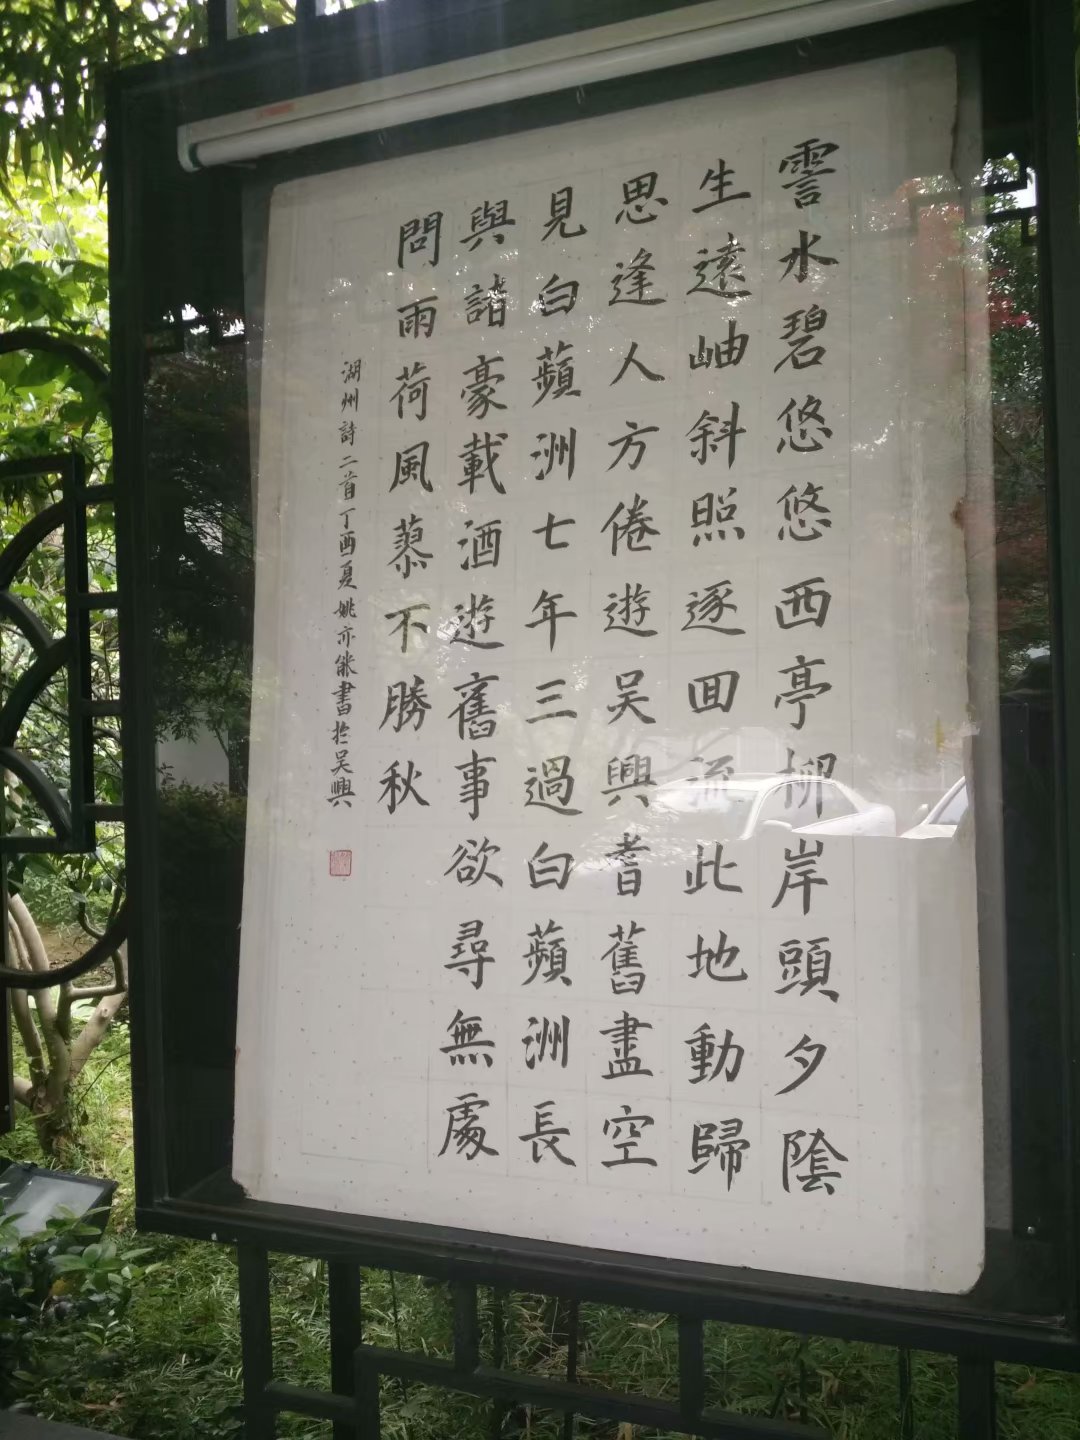 霅水碧悠悠西亭柳岸頭夕陰
生遠岫斜照逐回流此地動歸
思逢人方倦遊吴興耆舊盡空
見白蘋洲七年三過白蘋洲長
與諸豪載酒遊舊事欲尋無處
問雨荷風蓼不勝秋
湖州詩二首丁酉夏姚亦能書於吴興